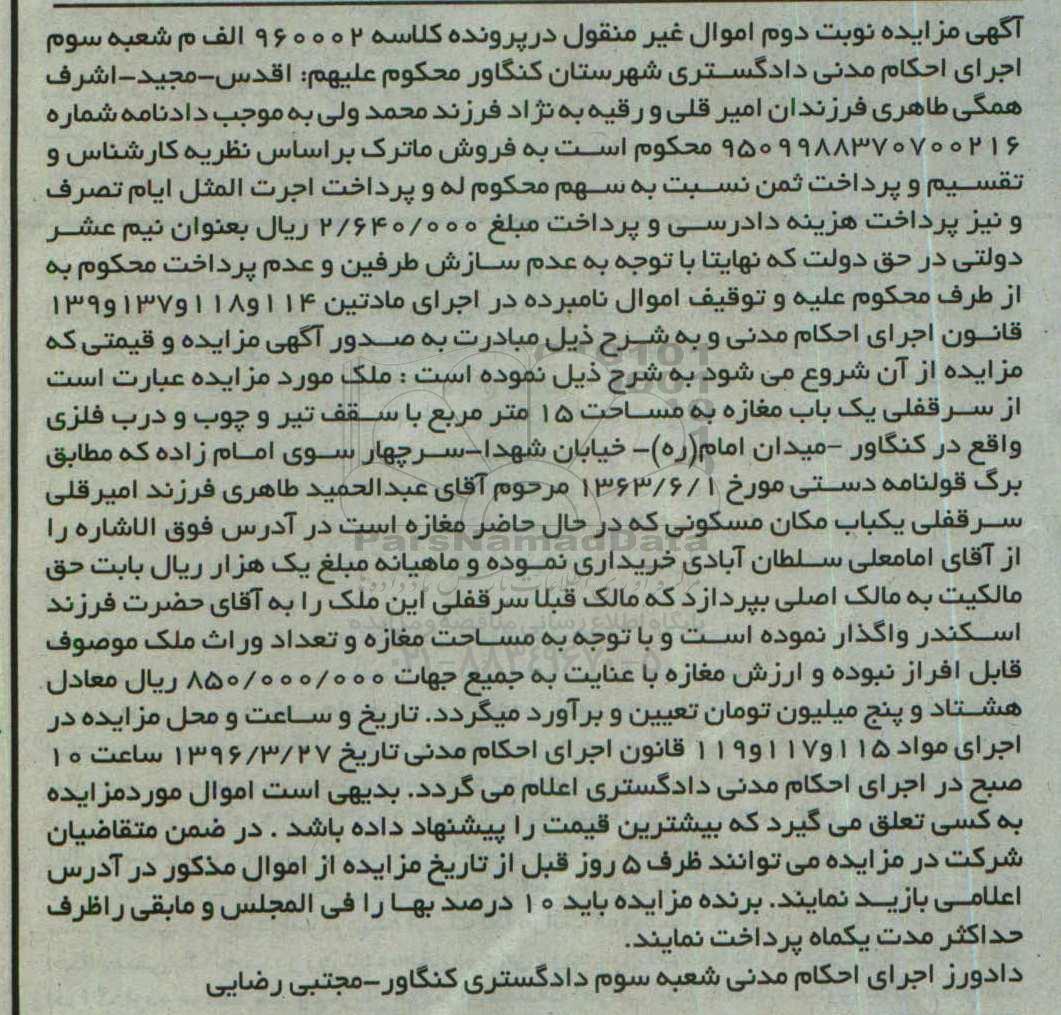 آگهی مزایده نوبت دوم اموال غیر منقول درپرونده کلاسه ۹۶۰۰۰۲ الف م شعبه سوم
اجرای احکام مدنی دادگستری شهرستان کنگاور محکوم علیهم: اقدس-مجید-اشرف
همگی طاهری فرزندان امیر قلی و رقیه به نژاد فرزند محمد ولی به موجب دادنامه شماره
۹۵۰۹۹۸۸۳۷۰۷۰۰۲۱۶ محکوم است به فروش ماترک براساس نظریه کارشناس و
تقسیم و پرداخت ثمن نسبت به سهم محکوم له و پرداخت اجرت المثل ایام تصرف
و نیز پرداخت هزینه دادرسی و پرداخت مبلغ ۲/۶۴۰/۰۰۰ ریال بعنوان نیم عشر
دولتی در حق دولت که نهایتا با توجه به عدم سازش طرفین و عدم پرداخت محکوم به
از طرف محکوم علیه و توقیف اموال نامبرده در اجرای مادتین ۱۱۴و۱۱۸و۱۳۷و۱۳۹
قانون اجرای احکام مدنی و به شرح ذیل مبادرت به صدور آگهی مزایده و قیمتی که
مزایده از آن شروع می شود به شرح ذیل نموده است : ملک مورد مزایده عبارت است
از سرقفلی یک باب مغازه به مساحت ۱۵ متر مربع با سقف تیر و چوب و درب فلزی
واقع در کنگاور -میدان امام(ره)- خیابان شهدا-سرچهار سوی امام زاده که مطابق
برگ قولنامه دستی مورخ ۱۳۶۳/۶/۱ مرحوم آقای عبدالحمید طاهری فرزند امیرقلی
سرقفلی یکباب مکان مسکونی که در حال حاضر مغازه است در آدرس فوق الاشاره را
از آقای امامعلی سلطان آبادی خریداری نموده و ماهیانه مبلغ یک هزار ریال بابت حق
مالکیت به مالک اصلی بپردازد که مالک قبلا سرقفلی این ملک را به آقای حضرت فرزند
اسکندر واگذار نموده است و با توجه به مساحت مغازه و تعداد وراث ملک موصوف
قابل افراز نبوده و ارزش مغازه با عنایت به جمیع جهات ۸۵۰/۰۰۰/۰۰۰ ریال معادل
هشتاد و پنج میلیون تومان تعیین و برآورد میگردد. تاریخ و ساعت و محل مزایده در
اجرای مواد ۱۱۵و۱۱۷و۱۱۹ قانون اجرای احکام مدنی تاریخ ۱۳۹۶/۳/۲۷ ساعت ۱۰
صبح در اجرای احکام مدنی دادگستری اعلام می گردد. بدیهی است اموال موردمزایده
به کسی تعلق می گیرد که بیشترین قیمت را پیشنهاد داده باشد . در ضمن متقاضیان
شرکت در مزایده می توانند ظرف ۵ روز قبل از تاریخ مزایده از اموال مذکور در آدرس
اعلامی بازید نمایند. برنده مزایده باید ۱۰ درصد بها را فی المجلس و مابقی راظرف
حداکثر مدت یکماه پرداخت نمایند.
دادورز اجرای احکام مدنی شعبه سوم دادگستری کنگاور-مجتبی رضایی
ParsNamadData